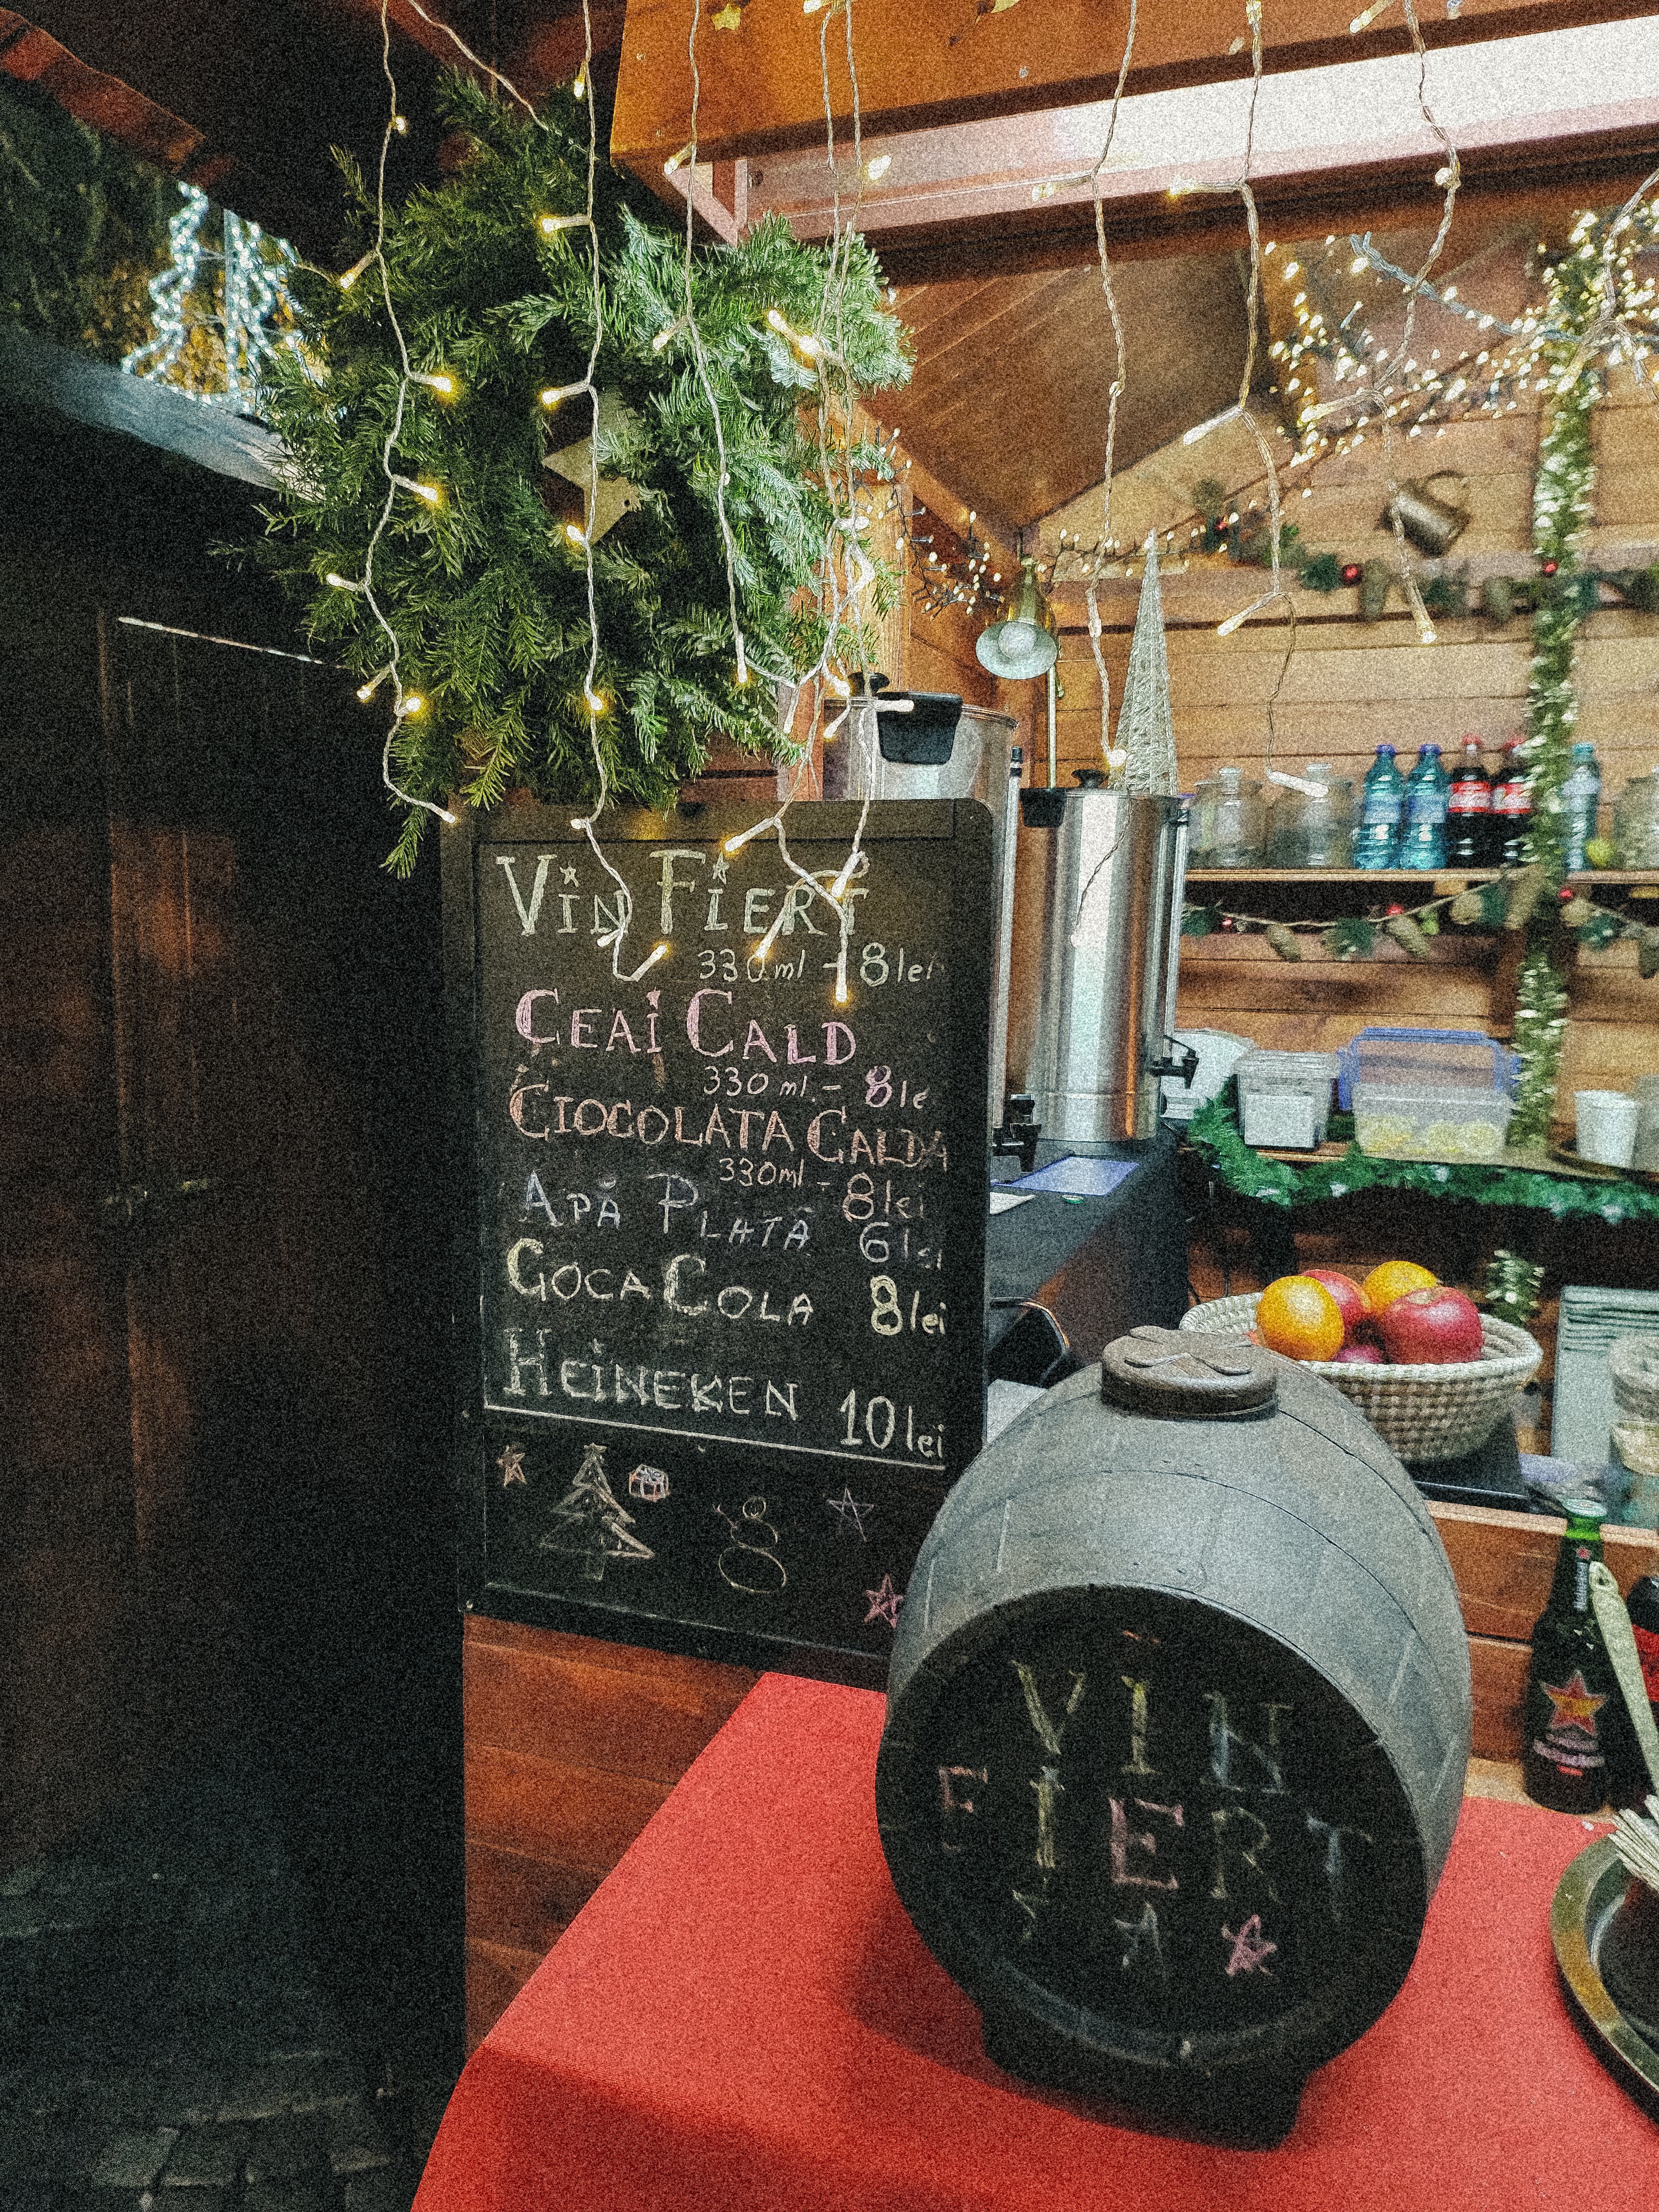 Vin Fiert
330 ml - 8 lei
Ceai Cald
330 ml. - 8 le
Ciocolata Calda
330 ml - 8 lei
Apă Plată 6 lei
Coca Cola 8 lei
Heineken 10 lei
VIN
FIERT